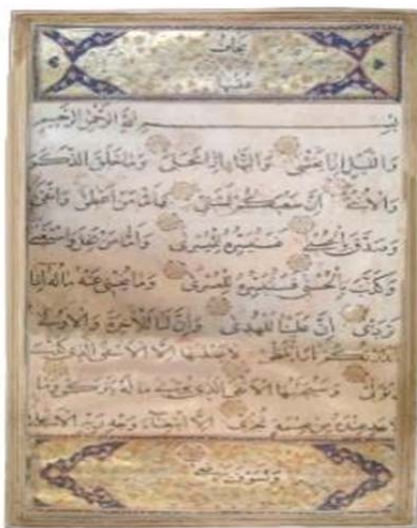 يخاف
عقبيها
بسم الله الرحمن الرحيم
وَالَّيْلِ إِذَا يَغْشَى وَالنَّهَارِ إِذَا تَجَلَّى وَمَا خَلَقَ الذَّكَرَ
وَالْأُنْثَى إِنَّ سَعْيَكُمْ لَشَتَّى فَأَمَّا مَنْ أَعْطَى وَاتَّقَى
وَصَدَّقَ بِالْحُسْنَى فَسَنُيَسِّرُهُ لِلْيُسْرَى وَأَمَّا مَنْ بَخِلَ وَاسْتَغْنَى
وَكَذَّبَ بِالْحُسْنَى فَسَنُيَسِّرُهُ لِلْعُسْرَى وَمَا يُغْنِي عَنْهُ مَالُهُ إِذَا
تَرَدَّى إِنَّ عَلَيْنَا لَلْهُدَى وَإِنَّ لَنَا لَلْآخِرَةَ وَالْأُولَى
فَأَنْذَرْتُكُمْ نَارًا تَلَظَّى لَا يَصْلَيهَا إِلَّا الْأَشْقَى الَّذِي كَذَّبَ
وَتَوَلَّى وَسَيُجَنَّبُهَا الْأَتْقَى الَّذِي يُؤْتِي مَالَهُ يَتَزَكَّى وَمَا
لِأَحَدٍ عِنْدَهُ مِنْ نِعْمَةٍ تُجْزَى إِلَّا ابْتِغَاءَ وَجْهِ رَبِّهِ الْأَعْلَى
وَلَسَوْفَ يَرْضَى